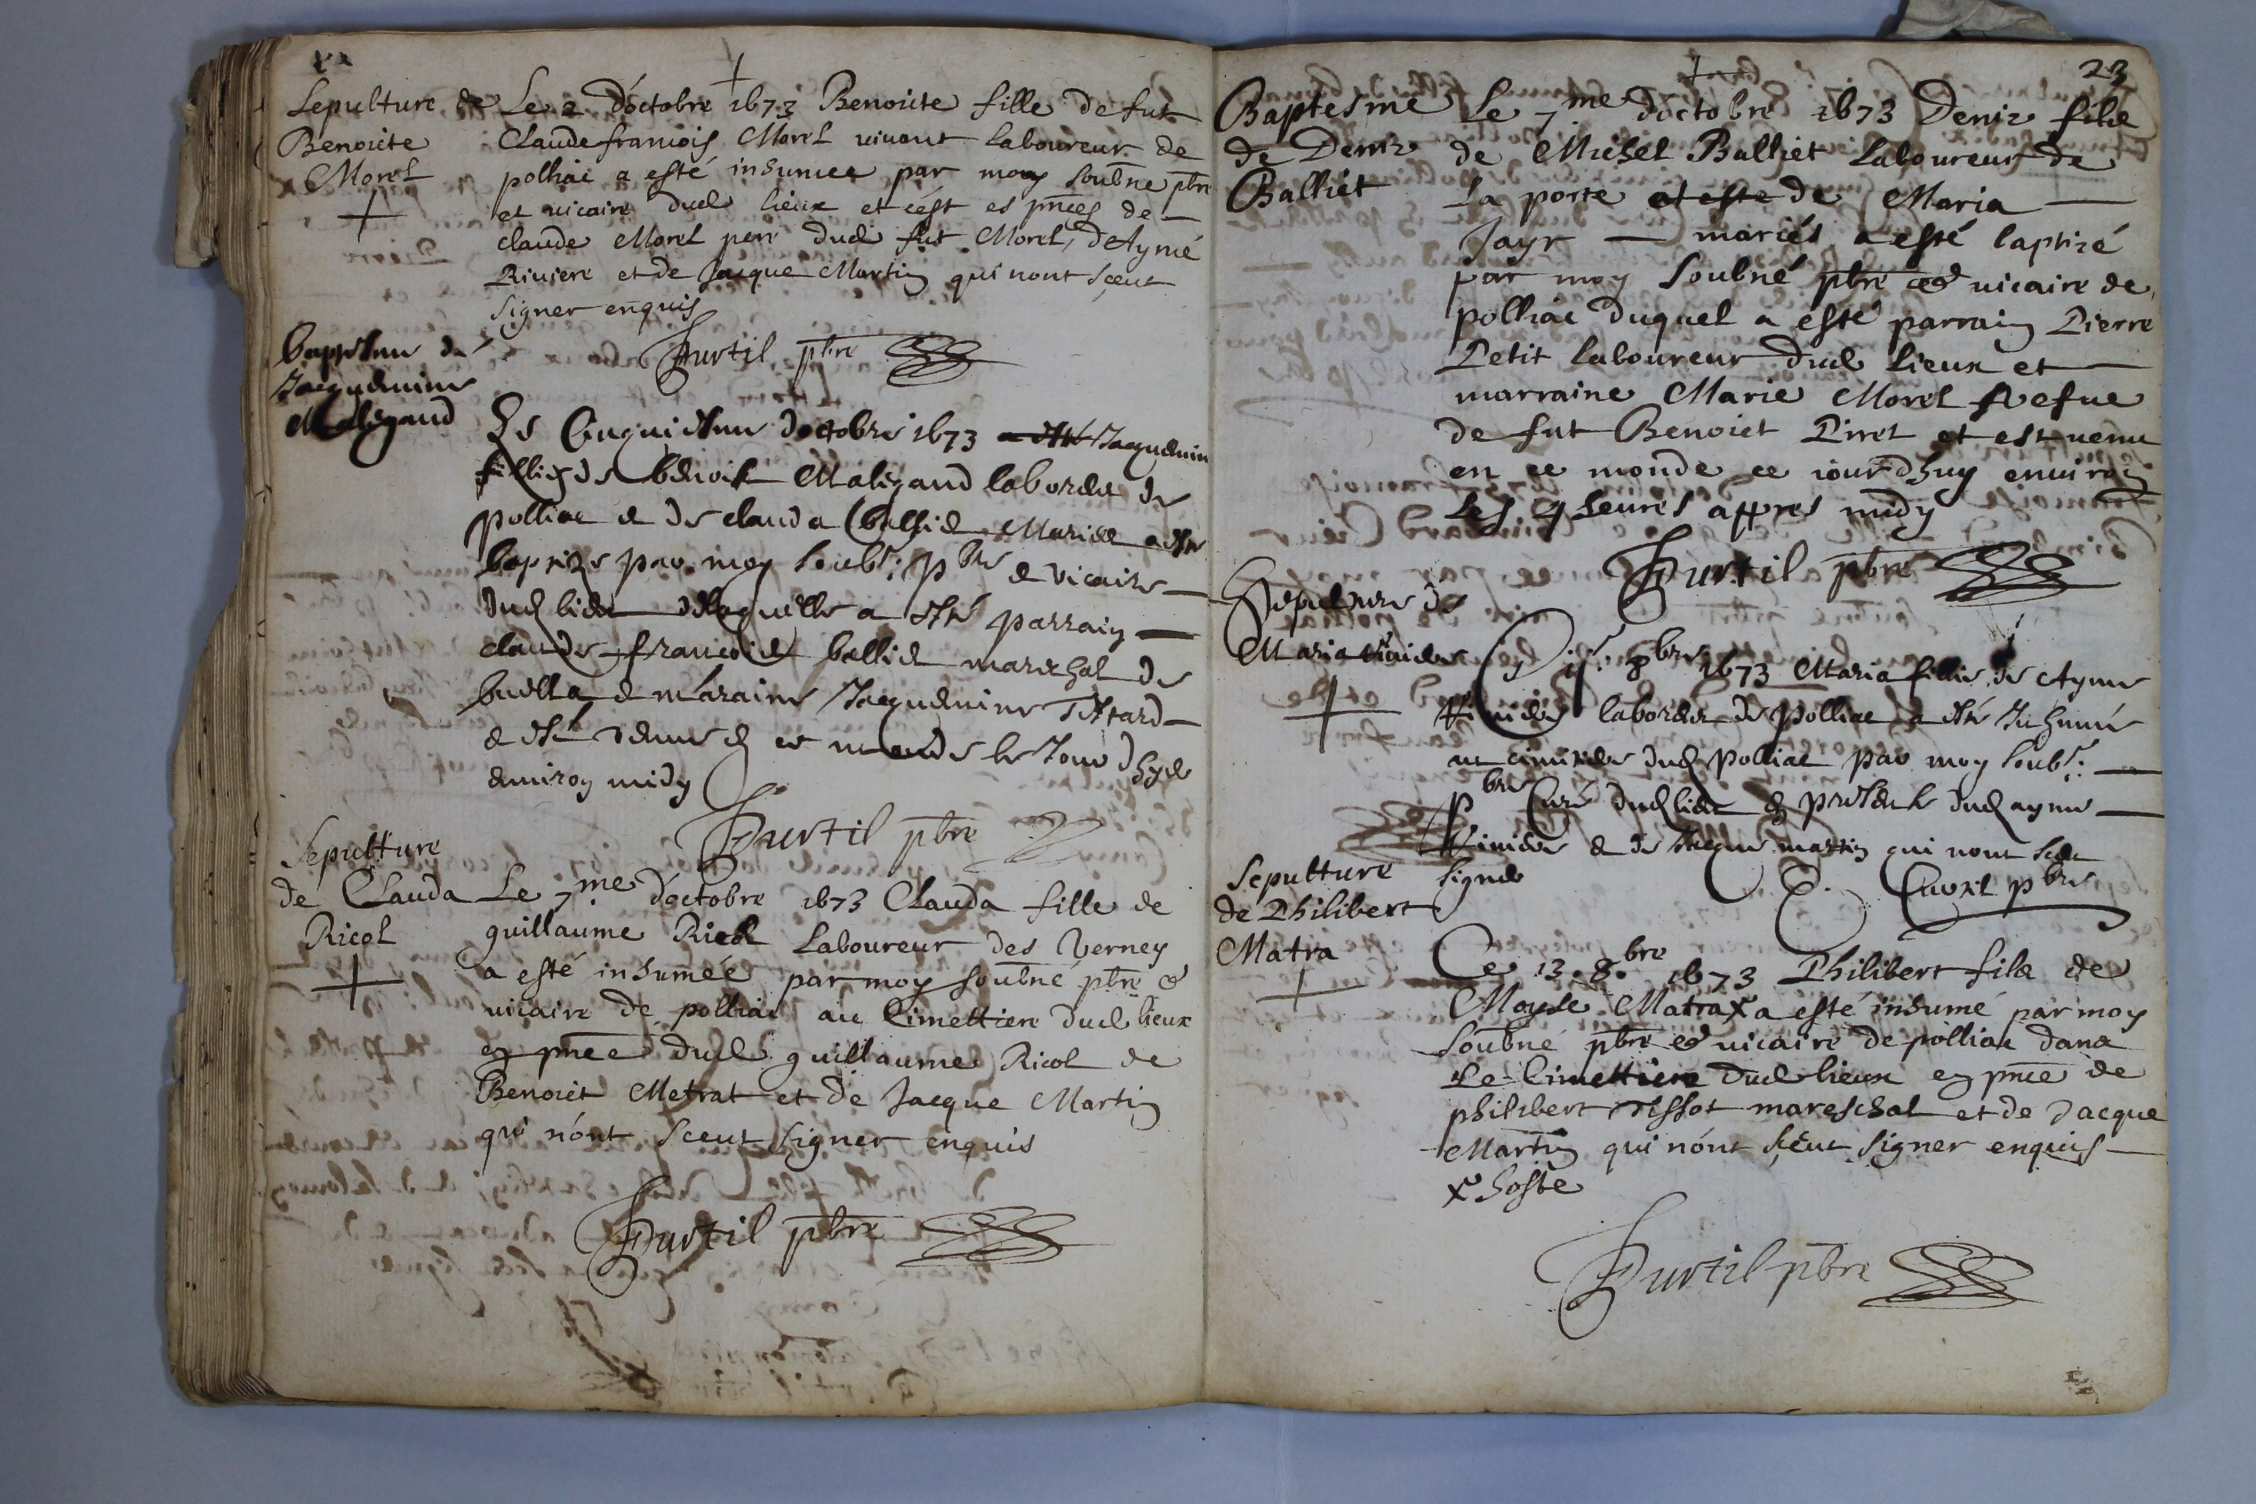 Sepulture de
Benoicte
Morel
Le 2 d'octobre 1673 Benoicte fille de fut
Claude francois Morel vivant laboureur de
polliac a esté inhumee par moy soubné pbre
et vicaire dud lieux et c'est es pnces de
claude Morel pere dud fut Morel, d'Aymé
Riviere et de Jacque Martin qui nont sçeut
signer enquis
Curtil pbre
baptesme de
Jacquemine
Maligand
Le Cinquiesme doctobre 1673 a esté Jacquemin
fillie de benoist Maligand laboreur de
polliac & de clauda Mariés a esté
baptize par moy soubs: pbre & vicaire
dud lieu delaquelle a esté parrain
claude francois balliet mareschal de
& maraine Jacquemine Tissard
& est venue en ce monde le Jour d'huy
environ midy
Curtil pbre
Sepulture
de Clauda
Ricol
Le 7me d'octobre 1673 Clauda fille de
guillaume Ricol Laboureur des Verney
a esté inhumée par moy soubné pbre &
vicaire de polliac au Cimettiere dud lieux
en pnce dud guillaume Ricol de
Benoict Metrat et de Jacque Martin
qui n'ont sceut signer enquis
Curtil pbre
23
Baptesme
de Deniz
Balliet
Le 7me d'octobre 1673 Deniz filz
de Michel Balliet Laboureur de
la porte et este de Maria
Jayr mariés a esté baptizé
par moy soubné pbre & vicaire de
polliac duquel a esté parrain Pierre
Petit laboureur dud lieux et
marraine Marie Morel vefue
de fut Benoict Piret et est venu
en ce monde ce iourdhuy environ
les 4 heures appres midy
Curtil pbre
Sepulture de
Maria
8bre 1673 Maria fillie de Ayme
laboreur de polliac a esté Inhumé
au cimitiere dud polliac par moy soubs:
pbre Curé dud lieu en presence dud ayme
& de Jacque martin qui nont sceu
signer
Curtil pbre
Sepulture
de Philibert
Matra
Ce 13. 8.bre 1673 Philibert filz de
Moyse Matra x a esté inhumé par moy
soubné pbre & vicaire de polliac dans
Le Cimettiere dud lieux en pnce de
philibert Tissot mareschal et de Jacque
Martin qui n'ont sçeut signer enquis
x hoste
Curtil pbre